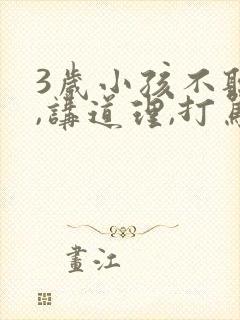 3歲小孩不
,講道理,打
畫江